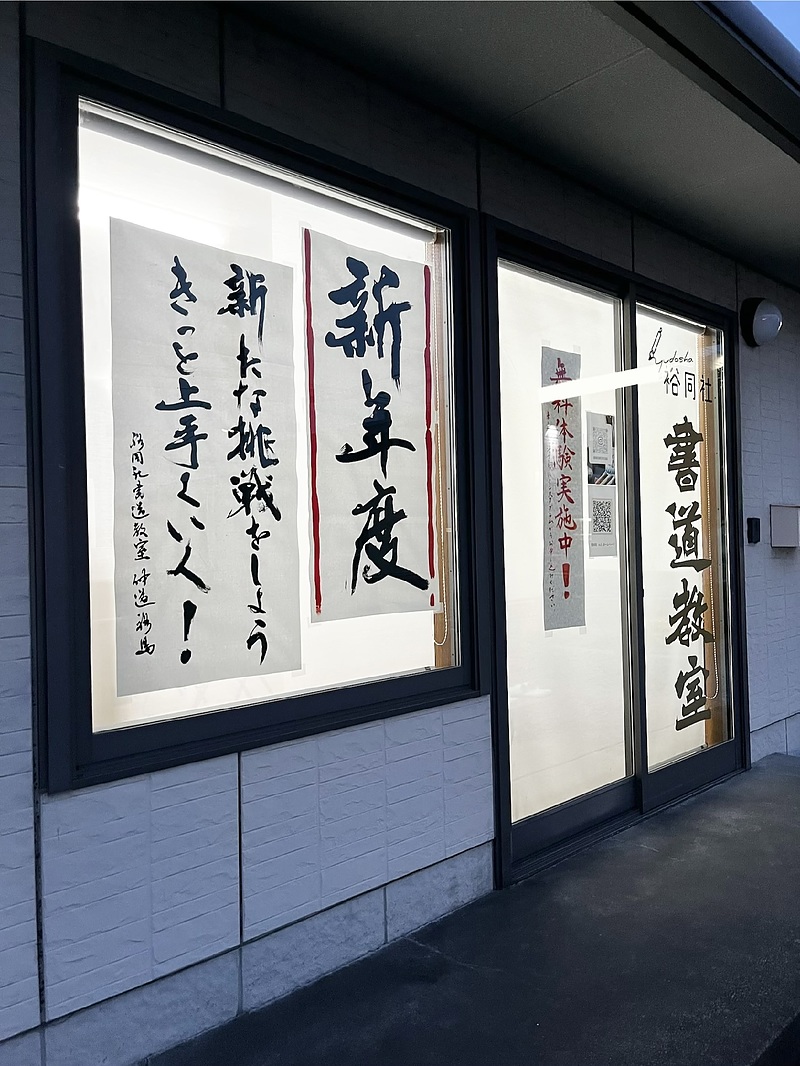 新年度
新たな挑戦をしよう
きっと上手くいく!
裕同社書道教室
無料体験実施中!
Yudosha
裕同社
書道教室